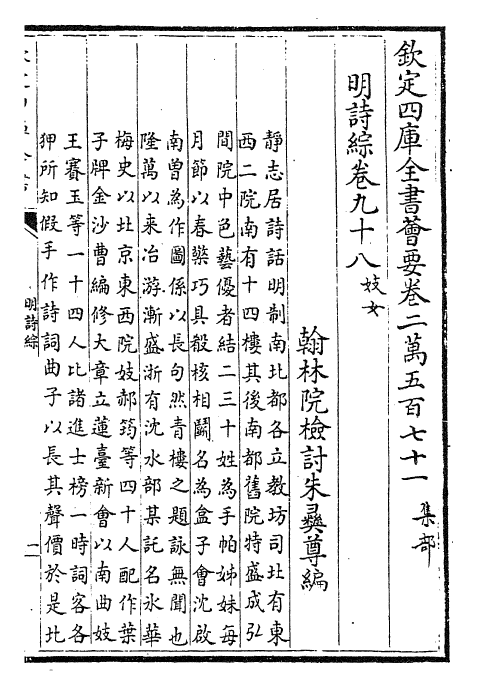 欽定四庫全書薈要卷二萬五百七十一 集部
明詩綜卷九十八 妓女
翰林院檢討朱彝尊編
靜志居詩話明制南北都各立教坊司北有東
西二院南有十四樓其後南都舊院特盛成弘
間院中色藝優者結二三十姓為手帕姊妹每
月節以春檠巧具殽核相鬬名為盒子會沈啟
南曾為作圖係以長句然青樓之題詠無聞也
隆萬以來冶游漸盛浙有沈水部某託名氷華
梅史以北京東西院妓郝筠等四十人配作葉
子牌金沙曹編修大章立蓮臺新會以南曲妓
王賽玉等一十四人比諸進士榜一時詞客各
狎所知假手作詩詞曲子以長其聲價於是北
明詩綜
一